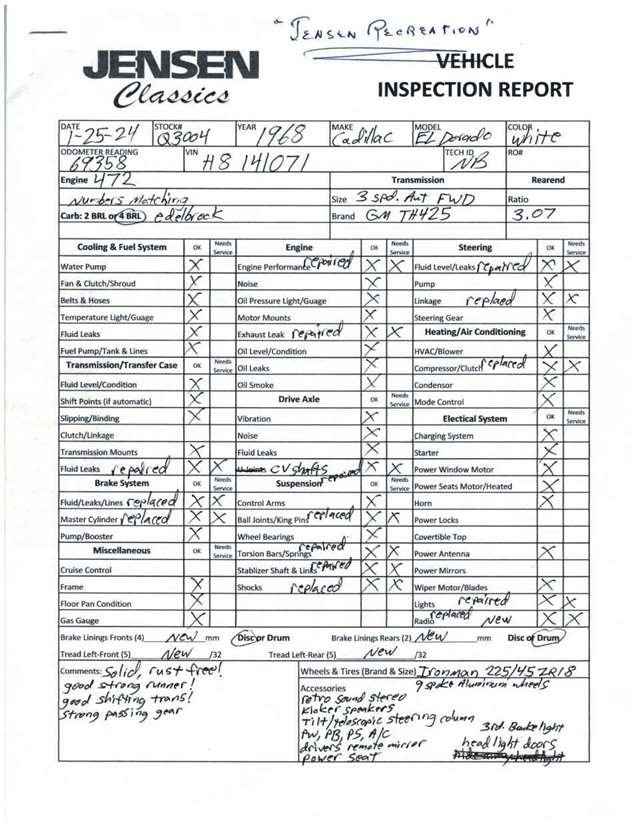 "JENSEN RECREATION"
JENSEN
Classics
VEHICLE
INSPECTION REPORT
DATE 1-25-24 STOCK# Q3004 YEAR 1968 MAKE Cadillac MODEL EL Dorado COLOR white
ODOMETER READING 69358 VIN H8 141071 TECH ID NB RO#
Engine 472 Transmission Rearend
Numbers Matching Size 3 spd. Aut FWD Ratio
Carb: 2 BRL or 4 BRL edelbrock Brand GM TH425 3.07
Cooling & Fuel System OK Needs Service Engine OK Needs Service Steering OK Needs Service
Water Pump X Engine Performance repaired X X Fluid Level/Leaks repaired X X
Fan & Clutch/Shroud X Noise X Pump X
Belts & Hoses X Oil Pressure Light/Guage X Linkage replaed X X
Temperature Light/Guage X Motor Mounts X Steering Gear X
Fluid Leaks X Exhaust Leak repaired X X Heating/Air Conditioning OK Needs Service
Fuel Pump/Tank & Lines X Oil Level/Condition X HVAC/Blower X
Transmission/Transfer Case OK Needs Service Oil Leaks X Compressor/Clutch replaced X X
Fluid Level/Condition X Oil Smoke X Condensor X
Shift Points (if automatic) X Drive Axle OK Needs Service Mode Control X
Slipping/Binding X Vibration X Electical System OK Needs Service
Clutch/Linkage Noise X Charging System X
Transmission Mounts X Fluid Leaks X Starter X
Fluid Leaks repaired X X U-Joints CV shafts repaired X X Power Window Motor X
Brake System OK Needs Service Suspension OK Needs Service Power Seats Motor/Heated X
Fluid/Leaks/Lines replaced X X Control Arms X Horn X
Master Cylinder replaced X X Ball Joints/King Pins replaced X X Power Locks
Pump/Booster X Wheel Bearings X Covertible Top
Miscellaneous OK Needs Service Torsion Bars/Springs repaired X X Power Antenna X
Cruise Control Stablizer Shaft & Links repaired X X Power Mirrors
Frame X Shocks replaced X X Wiper Motor/Blades X
Floor Pan Condition X Lights repaired X X
Gas Gauge X Radio replaced New X X
Brake Linings Fronts (4) New mm Disc or Drum Brake Linings Rears (2) New mm Disc or Drum
Tread Left-Front (5) New /32 Tread Left-Rear (5) New /32
Comments: Solid, rust free!
good strong runner!
good shifting trans!
strong passing gear
Wheels & Tires (Brand & Size) Ironman 225/45 ZR18
9 spoke Aluminum wheels
Accessories
retro sound stereo
kicker speakers
Tilt/teloscopic steering column
PW, PB, PS, A/C
drivers remote mirror
power seat
3rd. Brake light
headlight doors